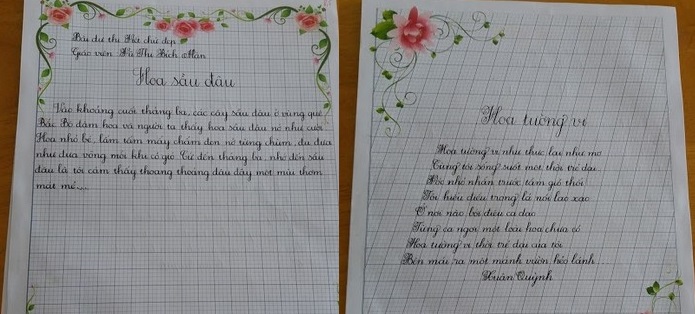 Bài dự thi Viết chữ đẹp
Giáo viên Hà Thị Bích Mận
Hoa sầu đâu
Vào khoảng cuối tháng ba, các cây sầu đâu ở vùng quê
Bắc Bộ đâm hoa và người ta thấy hoa sầu đâu nở như cười.
Hoa nhỏ bé, lấm tấm mấy chấm đen nở từng chùm, đu đưa
như đưa võng mỗi khi có gió. Cứ đến tháng ba, nhớ đến sầu
đâu là tôi cảm thấy thoang thoảng đâu đây một mùi thơm
mát mẻ....
Hoa tường vi
Hoa tường vi như thực lại như mơ
Cùng tôi sống suốt một thời trẻ dại
Hoa nhỏ nhắn trước tấm gió thổi
Tôi hiểu điều trong lá nói lao xao
Ở nơi nào bởi điệu ca dao
Từng ca ngợi một loài hoa chưa có
Hoa tường vi thời trẻ dại của tôi
Bên mái ra một mảnh vườn héo lánh
Xuân Quỳnh